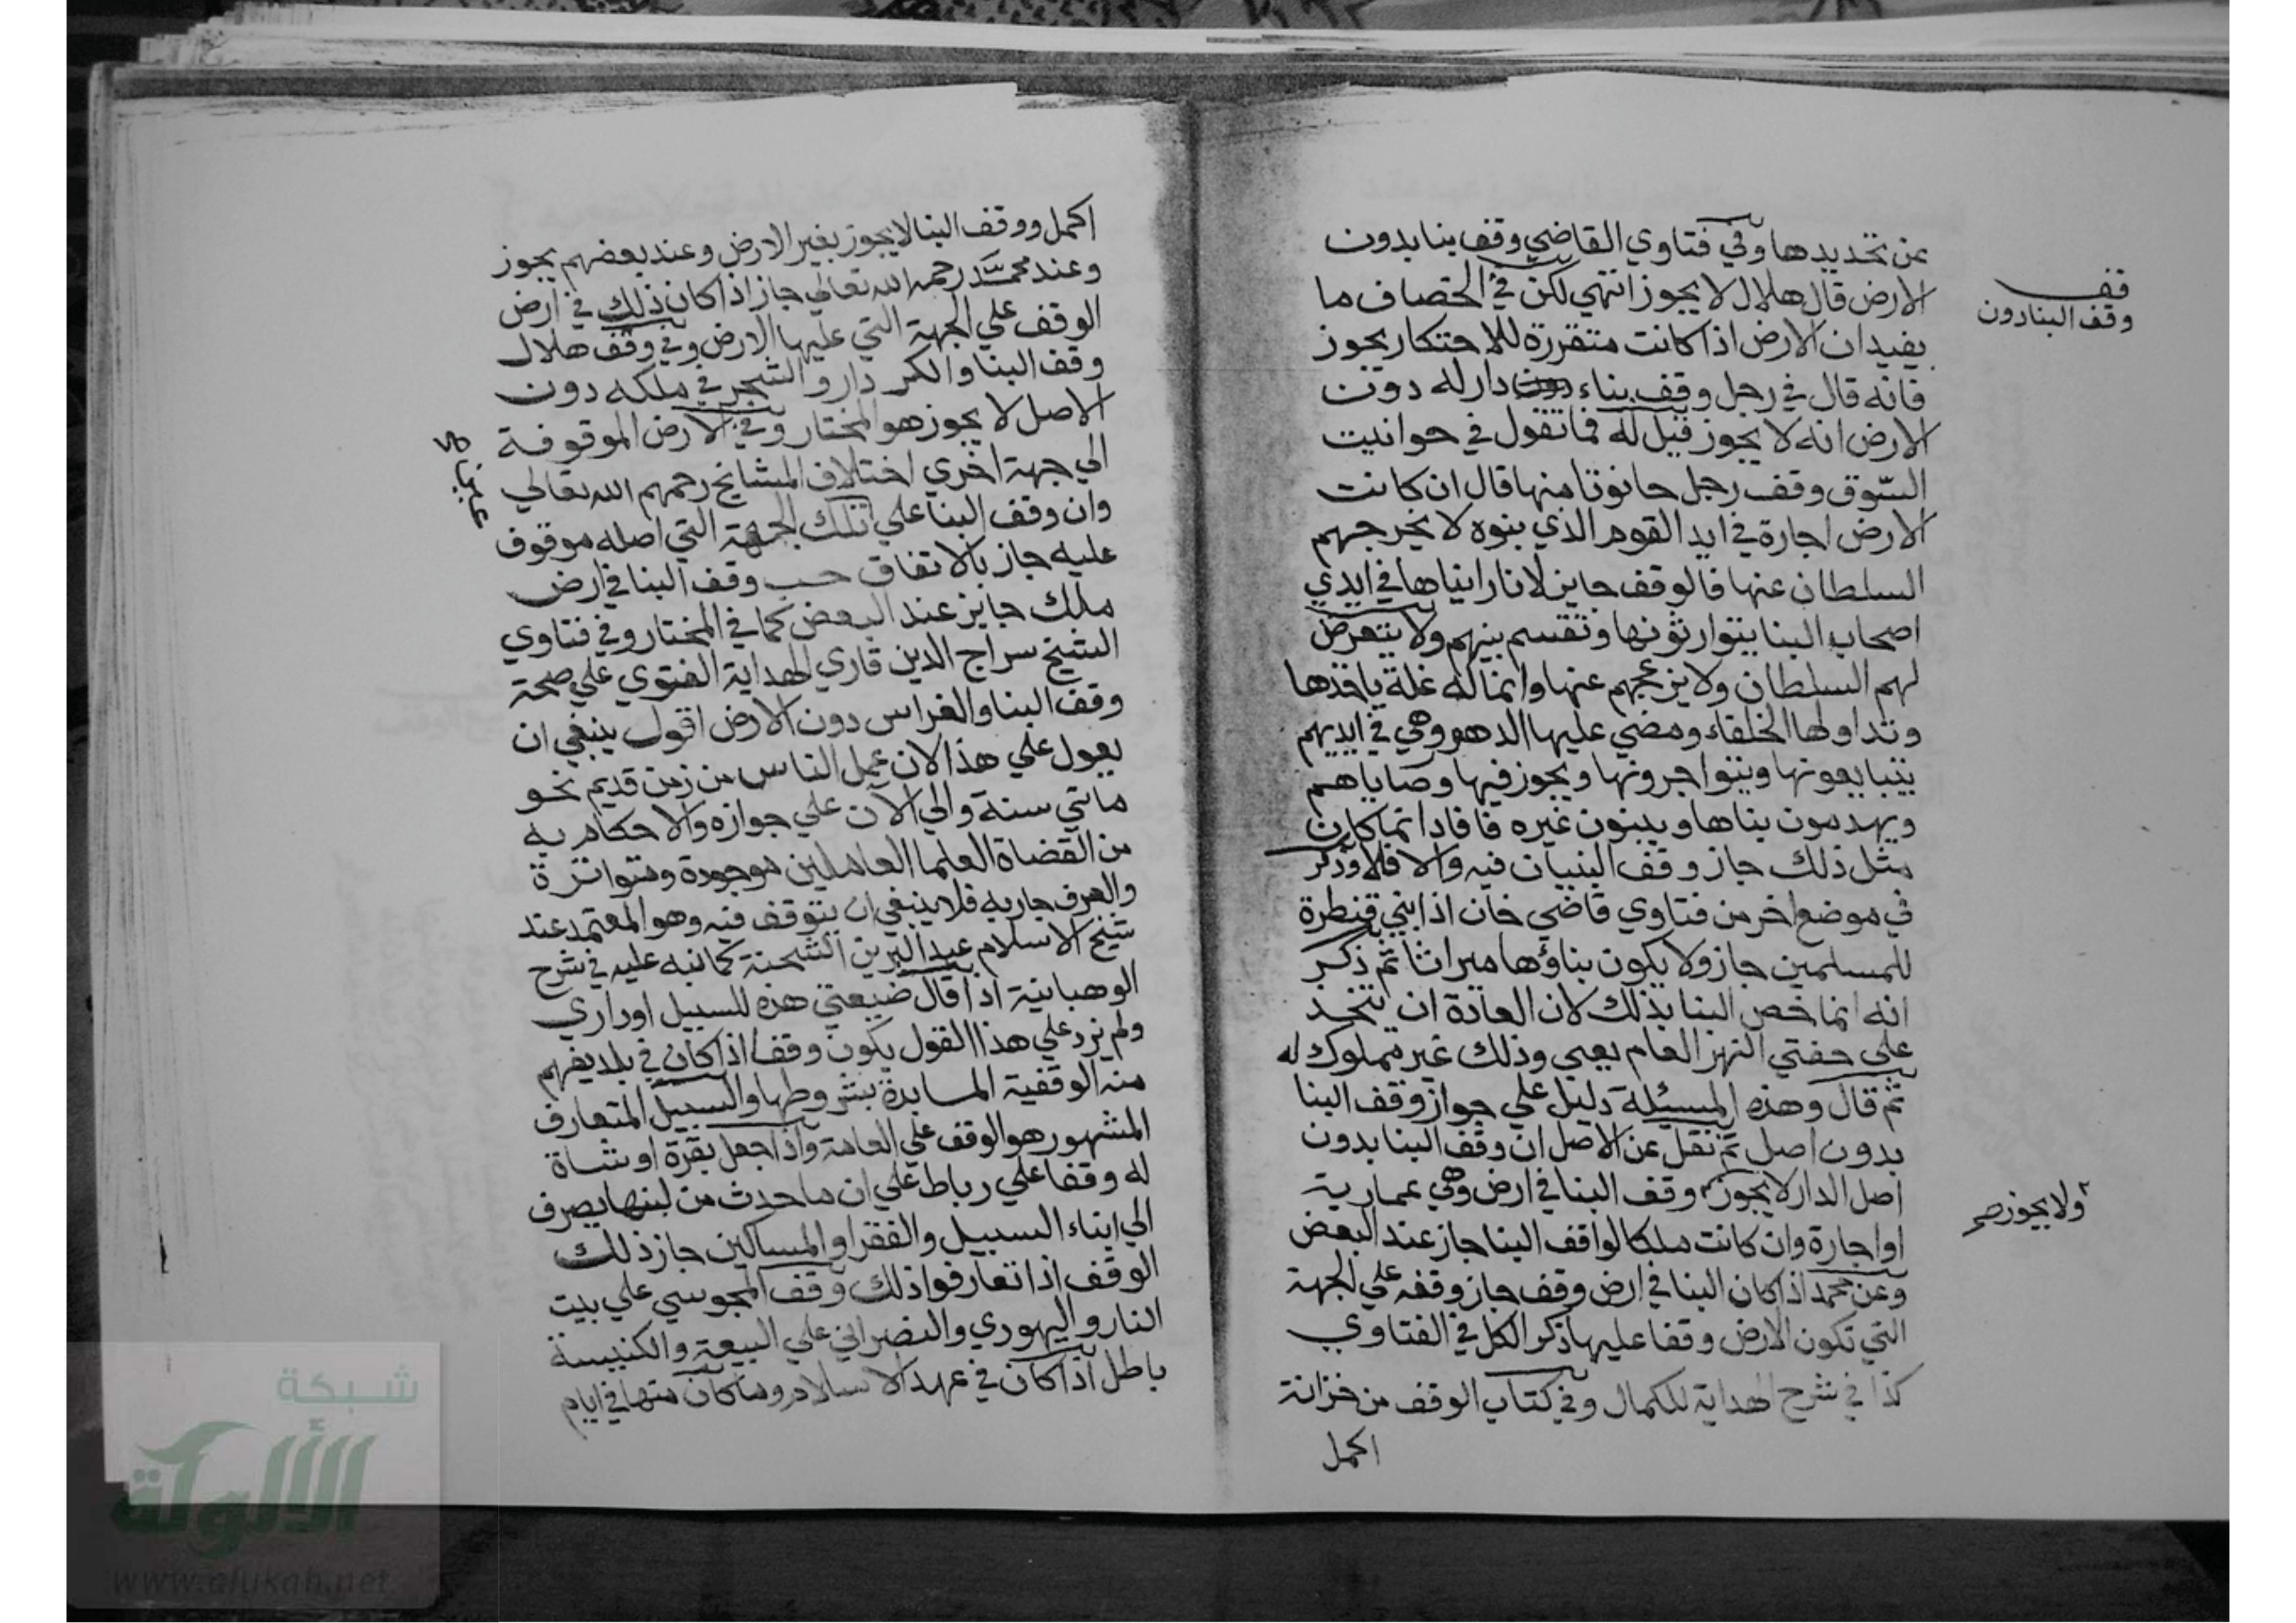 عن تحديدها وفي فتاوي القاضي وقف بنا بدون
الارض قال هلال لا يجوز انتهي لكن في الخصاف ما
يفيد ان الارض اذا كانت متقررة للاحتكار يجوز
فانه قال في رجل وقف بناء دار له دون
الارض انه لا يجوز قيل له فما تقول في حوانيت
السوق وقف رجل حانوتا منها قال ان كانت
الارض اجارة في ايد القوم الذي بنوه لا يخرجهم
السلطان عنها فالوقف جايز لانا رايناها في ايدي
اصحاب البنا يتوارثونها وتقسم بينهم ولا يتعرض
لهم السلطان ولا يزعجهم عنها وانما له غلة ياخذها
وتداولها الخلفاء ومضي عليها الدهر وهي في ايديهم
يتبايعونها ويتواجرونها ويجوز فيها وصاياهم
ويهدمون بناها ويبنون غيره فافاد انما كان
مثل ذلك جاز وقف البنيان فيه والا فلا وذكر
في موضع اخر من فتاوي قاضي خان اذا بني قنطرة
للمسلمين جاز ولا يكون بناؤها ميراثا ثم ذكر
انه انما خص البنا بذلك لان العادة ان تتخذ
علي حفتي النهر العام يعني وذلك غير مملوك له
ثم قال وهذه المسئلة دليل علي جواز وقف البنا
بدون اصل ثم نقل عن الاصل ان وقف البنا بدون
اصل الدار لا يجوز وقف البنا في ارض وهي عمارية
او اجارة وان كانت ملكا لواقف البنا جاز عند البعض
وعن محمد اذا كان البنا في ارض وقف جاز وقفه علي الجهة
التي تكون الارض وقفا عليها ذكر الكل في الفتاوي
كذا في شرح الهداية للكمال وفي كتاب الوقف من خزانة
اكمل
قف
وقف البنا دون
ولا يجوز صح
اكمل ووقف البنا لا يجوز بغير الارض وعند بعضهم يجوز
وعند محمد رحمه الله تعالي جاز اذا كان ذلك في ارض
الوقف علي الجهة التي عليها الارض وفي وقف هلال
وقف البنا والكردار والشجر في ملكه دون
الاصل لا يجوز هو المختار وفي الارض الموقوفة
الي جهة اخري اختلاف المشايخ رحمهم الله تعالي
وان وقف البنا علي تلك الجهة التي اصله موقوف
عليه جاز بالاتفاق حسب وقف البنا في ارض
ملك جايز عند البعض كما في المختار وفي فتاوي
الشيخ سراج الدين قاري الهداية الفتوي علي صحة
وقف البنا والغراس دون الارض اقول ينبغي ان
يعول علي هذا لان عمل الناس من زمن قديم نحو
مائتي سنة والي الآن علي جوازه والاحكام به
من القضاة العلما العاملين موجودة ومتواترة
والعرف جار به فلا ينبغي ان يتوقف فيه وهو المعتمد عند
شيخ الاسلام عبد البر بن الشحنة كما نبه عليه في شرح
الوهبانية اذا قال ضيعتي هذه للسبيل او داري
ولم يزد علي هذا القول يكون وقفا اذا كان في بلد يفهم
منه الوقفية المسابدة بشروطها والسبيل المتعارف
المشهور هو الوقف علي العامة واذا جعل بقرة او شاة
له وقفا علي رباط علي ان ما حدث من لبنها يصرف
الي ابناء السبيل والفقرا والمساكين جاز ذلك
الوقف اذا تعارفوا ذلك وقف المجوسي علي بيت
النار واليهودي والنصراني علي البيعة والكنيسة
باطل اذا كان في عهد الاسلام وما كان منها في ايام
شبكة
الألوكة
www.alukah.net